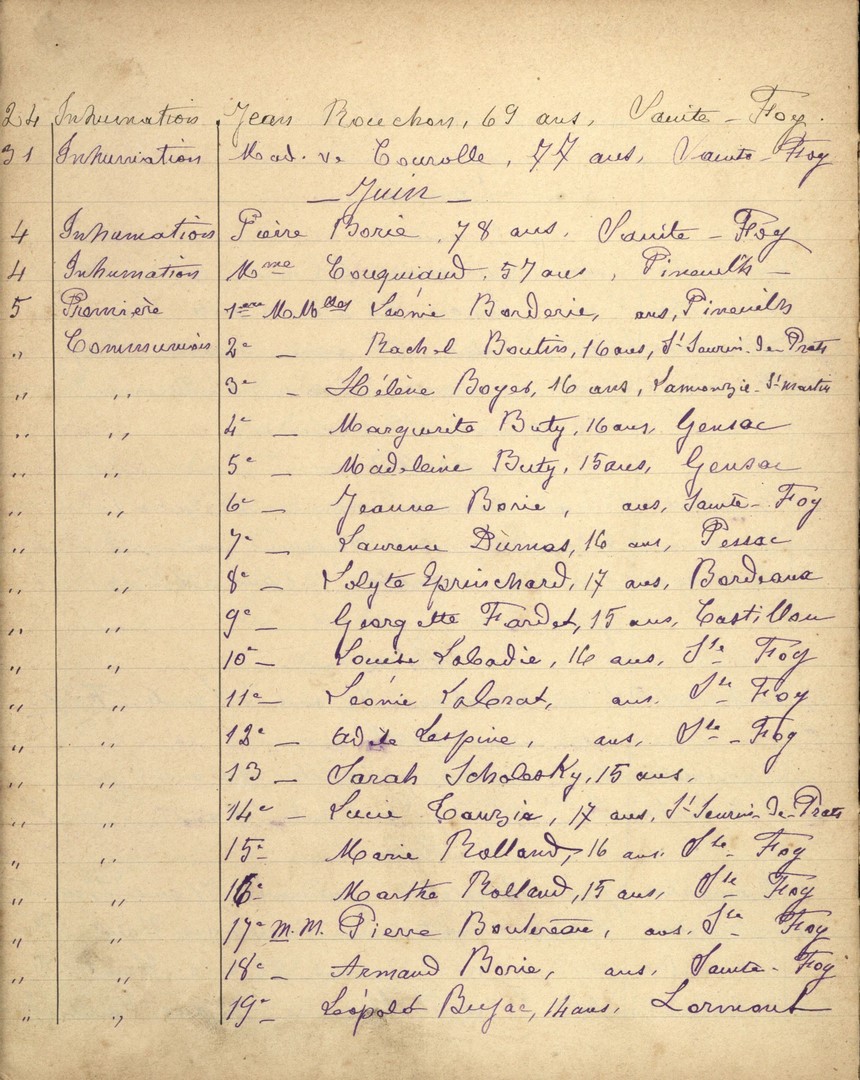 24 Inhumation Jean Rouchon, 69 ans, Sainte-Foy.
31 Inhumation Mad. ve Courolle, 77 ans, Sainte-Foy
- Juin -
4 Inhumation Pierre Borie, 78 ans. Sainte-Foy
4 Inhumation Mme Couquiaud, 57 ans, Pineuilh -
5 Première 1ere MMelles Léonie Borderie, ans, Pineuilh
" Communion 2e - Rachel Boutin, 16 ans, St Seurin-de-Prats
" " 3e - Hélène Boyer, 16 ans, Lamonzie-St-Martin
" " 4e - Marguerite Buty, 16 ans, Gensac
" " 5e - Madeleine Buty, 15 ans, Gensac
" " 6e - Jeanne Borie, ans, Sainte-Foy
" " 7e - Laurence Dumas, 16 ans, Pessac
" " 8e - Lolyte Eprinchard, 17 ans, Bordeaux
" " 9e - Georgette Fardet, 15 ans, Castillon
" " 10e - Louise Labadie, 16 ans, Ste Foy
" " 11e - Léonie Labrat, ans. Ste Foy
" " 12e - Adèle Lespine, ans, Ste-Foy
" " 13 - Sarah Scholesky, 15 ans,
" " 14e - Lucie Tauzia, 17 ans, St Seurin-de-Prats
" " 15e - Marie Rolland, 16 ans. Ste Foy
" " 16e - Marthe Rolland, 15 ans, Ste Foy
" " 17e M.M. Pierre Boutereau, ans. Ste Foy
" " 18e - Armand Borie, ans, Sainte-Foy
" " 19e - Léopold Bujac, 14 ans, Lormont